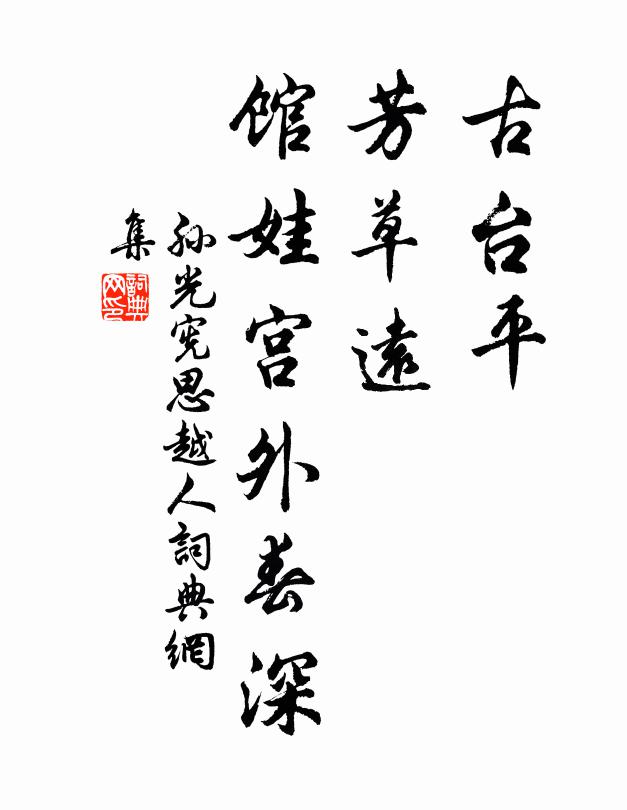 古台平
芳草遠
館娃宫外春深
孙光宪思越人詞典網
集
詞典
网印